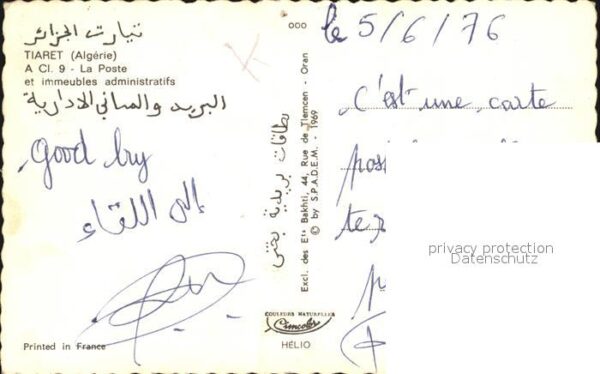 تيارت الجزائر
TIARET (Algérie)
A Cl. 9 - La Poste
et immeubles administratifs
البريد والمباني الادارية
Good by
إلى اللقاء
Printed in France
000
بطاقات بريدية بختي
Excl. des Ets Bakhti, 44, Rue de Tlemcen - Oran
© by S.P.A.D.E.M. - 1969
COULEURS NATURELLES
Cimcolor
HELIO
le 5/6/76
C'est une carte
pos
privacy protection
Datenschutz